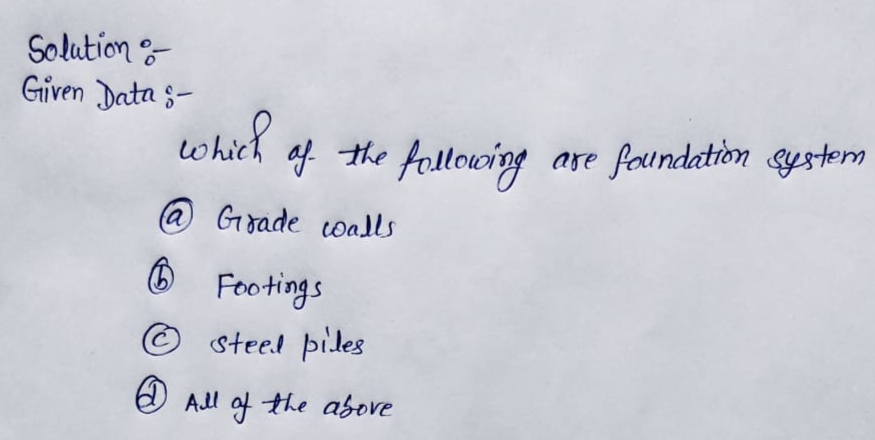 Solution :-
Given Data :-
which of the following are foundation system
(a) Grade walls
(b) Footings
(c) steel piles
(d) All of the above